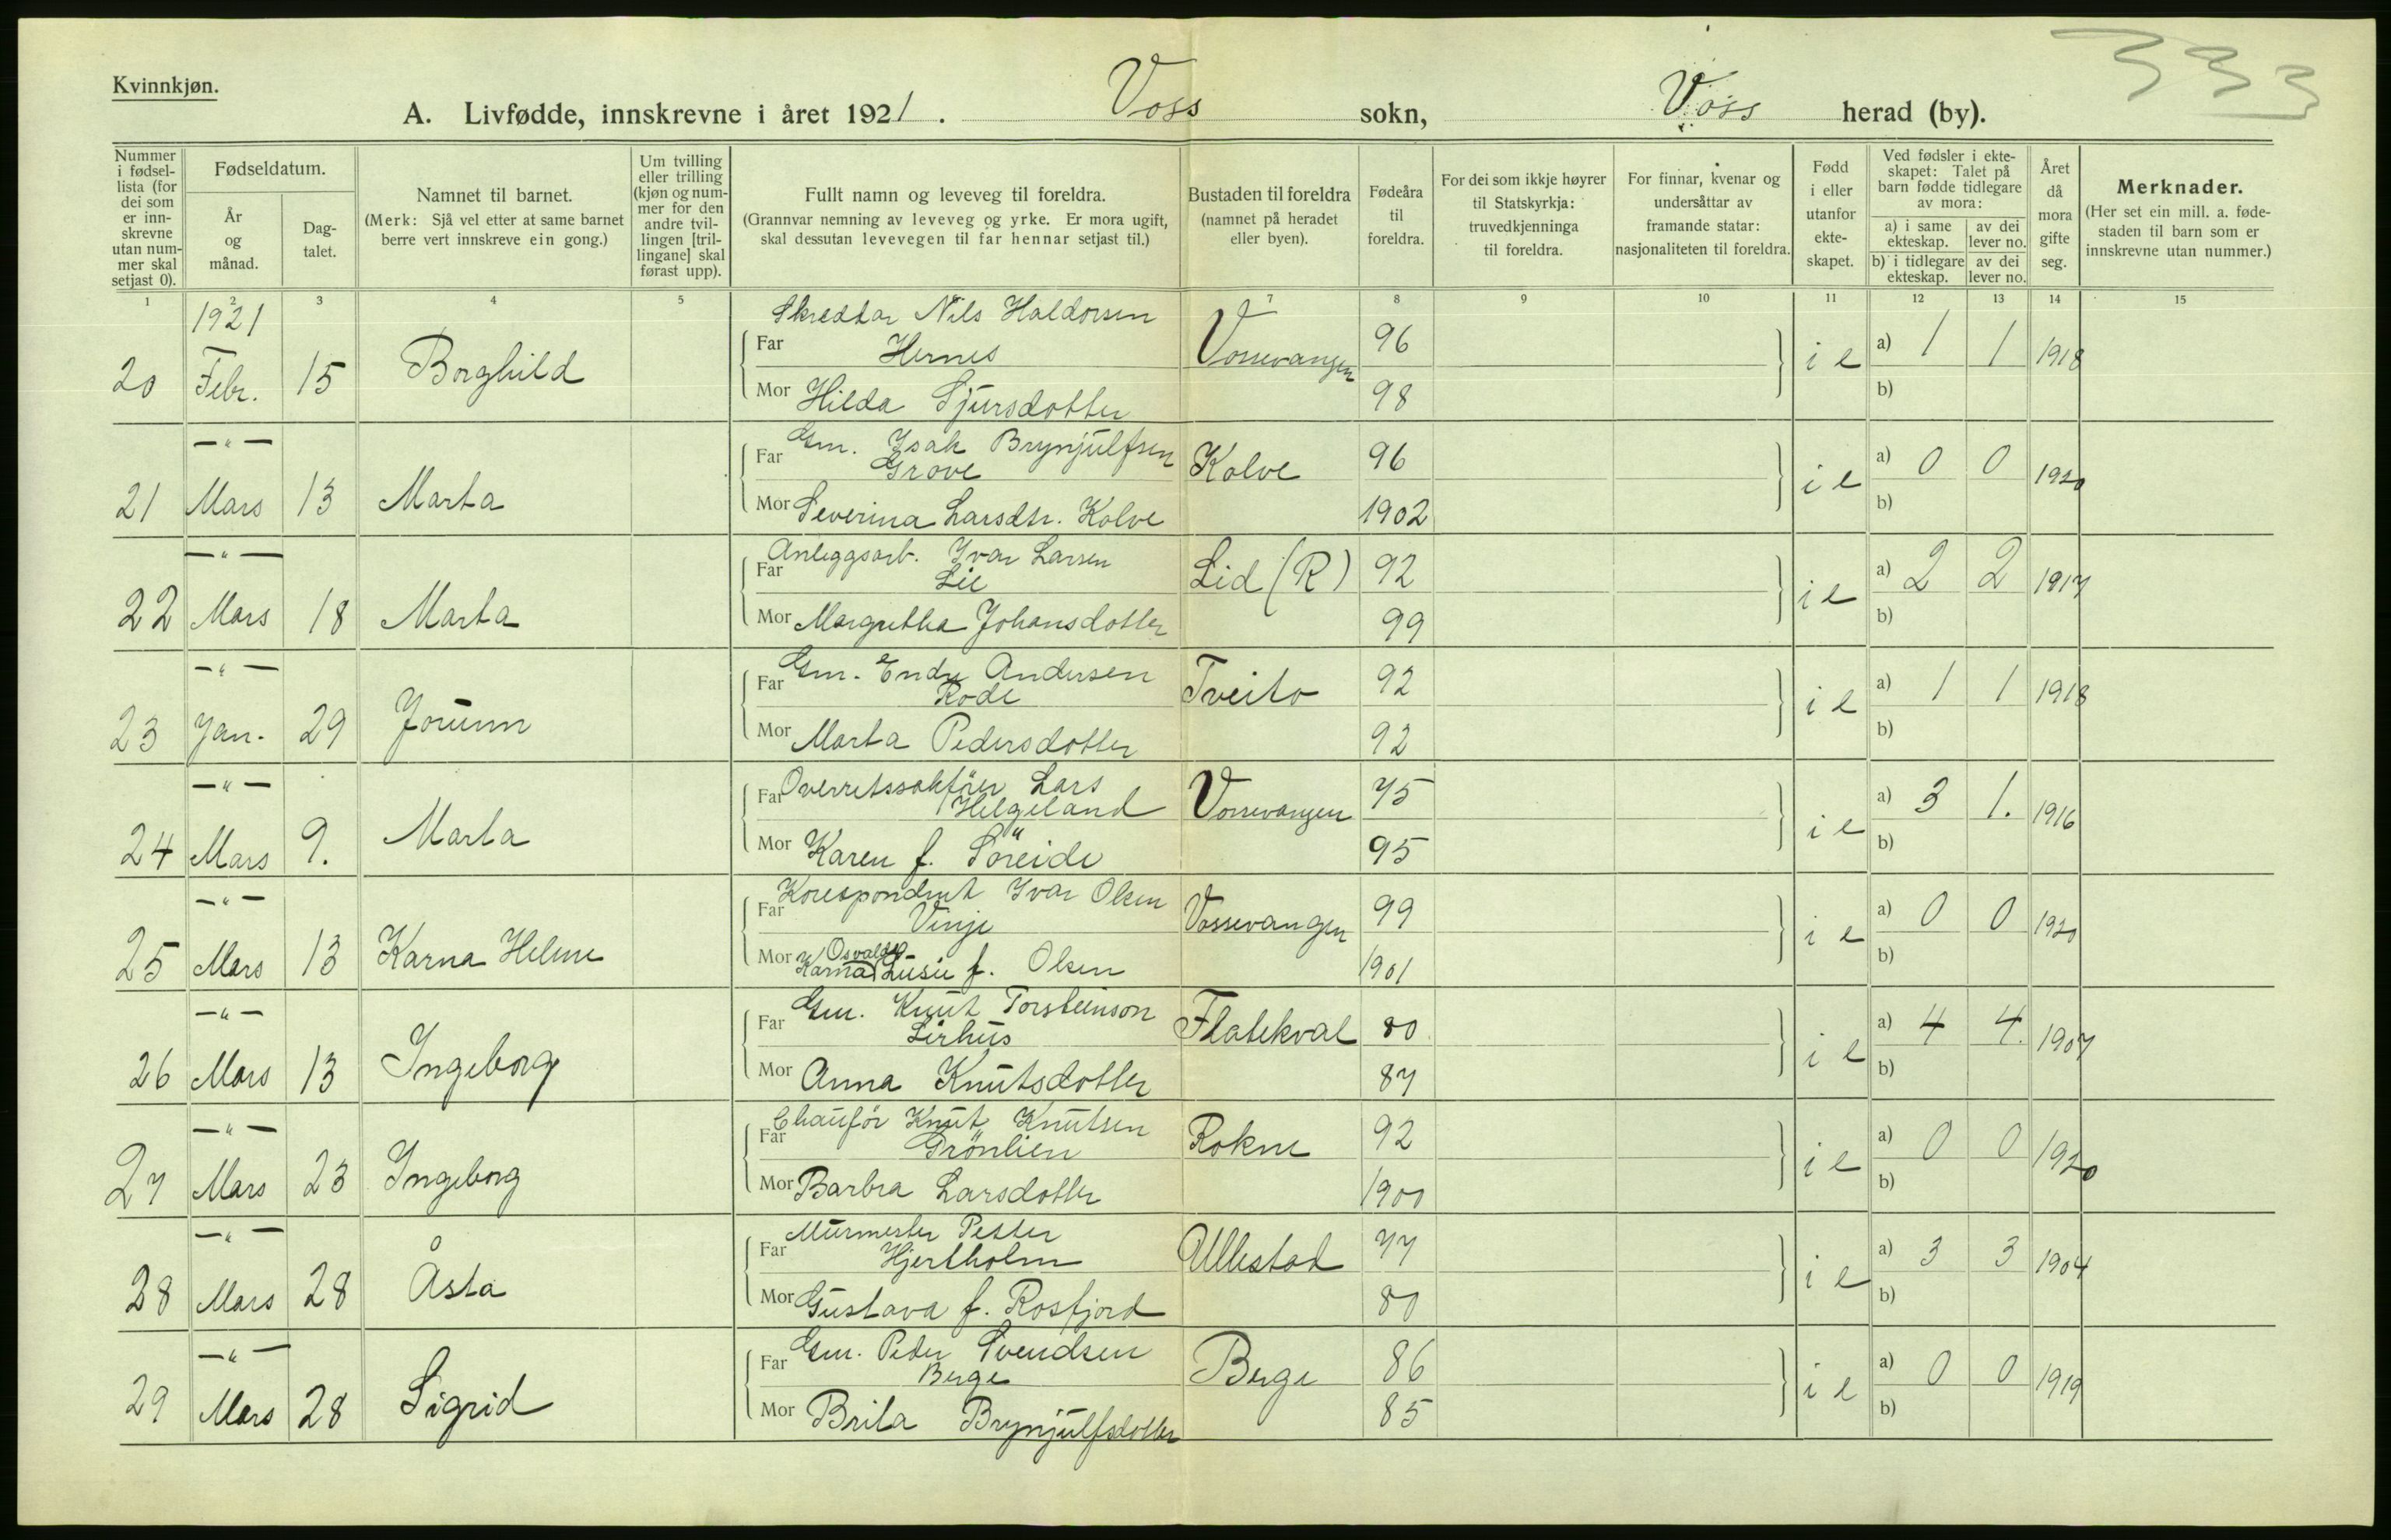 333
Kvinnkjøn.
A. Livfødde, innskrevne i året 1921. Voss sokn, Voss herad (by).
Nummer i fødsel-lista (for dei som er inn-skrevne utan num-mer skal setjast 0).
Fødseldatum.
År og månad.
Dag-talet.
Namnet til barnet.
(Merk: Sjå vel etter at same barnet berre vert innskreve ein gong.)
Um tvilling eller trilling (kjøn og num-mer for den andre tvil-lingen [tril-lingane] skal førast upp).
Fullt namn og leveveg til foreldra.
(Grannvar nemning av leveveg og yrke. Er mora ugift, skal dessutan levevegen til far hennar setjast til.)
Bustaden til foreldra (namnet på heradet eller byen).
Fødeåra til foreldra.
For dei som ikkje høyrer til Statskyrkja: truvedkjenninga til foreldra.
For finnar, kvenar og undersåttar av framande statar: nasjonaliteten til foreldra.
Fødd i eller utanfor ekte-skapet.
Ved fødsler i ekte-skapet: Talet på barn fødde tidlegare av mora:
a) i same ekteskap. av dei lever no.
b) i tidlegare ekteskap. av dei lever no.
Året då mora gifte seg.
Merknader.
(Her set ein mill. a. føde-staden til barn som er innskrevne utan nummer.)
1 2 3 4 5 7 8 9 10 11 12 13 14 15
1921 Skreddar Nils Haldorsen
20 Febr. 15 Borghild Far Hernes Vossevangen 96 i e a) 1 1 1918
Mor Hilda Sjursdotter 98 b)
—"— Gm. Isak Brynjulfsen
21 Mars 13 Marta Far Grove Kolve 96 i e a) 0 0 1920
Mor Severina Larsdtr. Kolve 1902 b)
—"— Anleggsarb. Ivar Larsen
22 Mars 18 Marta Far Lie Lid (R) 92 i e a) 2 2 1917
Mor Margretha Johansdotter 99 b)
—"— Gm. Endre Andersen
23 Jan. 29 Jorunn Far Rode Tveito 92 i e a) 1 1 1918
Mor Marta Pedersdotter 92 b)
—"— Overretssakfører Lars
24 Mars 9. Marta Far Helgeland Vossevangen 75 i e a) 3 1. 1916
Mor Karen f. Söreide 95 b)
—"— Korespondent Ivar Olsen
25 Mars 13 Karna Helene Far Vinje Vossevangen 99 i e a) 0 0 1920
Mor Karna Lusie f. Olsen 1901 b)
—"— Gm. Knut Torsteinson
26 Mars 13 Ingeborg Far Lirhus Flatekval 80 i e a) 4 4. 1907
Mor Anna Knutsdotter 87 b)
—"— Chauför Knut Knutsen
27 Mars 23 Ingeborg Far Grönlien Rokne 92 i e a) 0 0 1920
Mor Barbra Larsdotter 1900 b)
—"— Murmester Petter
28 Mars 28 Åsta Far Hjertholm Ullestad 77 i e a) 3 3 1904
Mor Gustava f. Rosfjord 80 b)
—"— Gm. Peder Svendsen
29 Mars 28 Sigrid Far Berge Berge 86 i e a) 0 0 1919
Mor Brita Brynjulfsdotter 85 b)